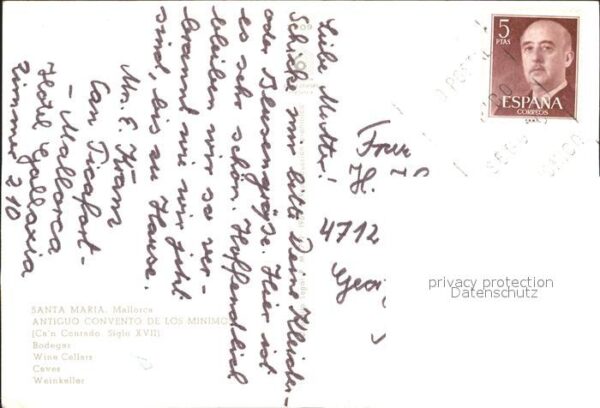 Liebe Mutter!
Schicke mir bitte Deine Kleider-
oder Blusengröße. Hier ist
es sehr schön. Hoffentlich
bleiben wir so ver-
brannt wie wir jetzt
sind, bis zu Hause.
Can Picafort-
- Mallorca
Hotel Gallaxia
Zimmer 210
Frau
H.
4712
5
PTAS
ESPAÑA
CORREOS
SANTA MARIA, Mallorca
ANTIGUO CONVENTO DE LOS MINIMO
(Ca'n Conrado, Siglo XVII)
Bodegas
Wine Cellars
Caves
Weinkeller
privacy protection
Datenschutz